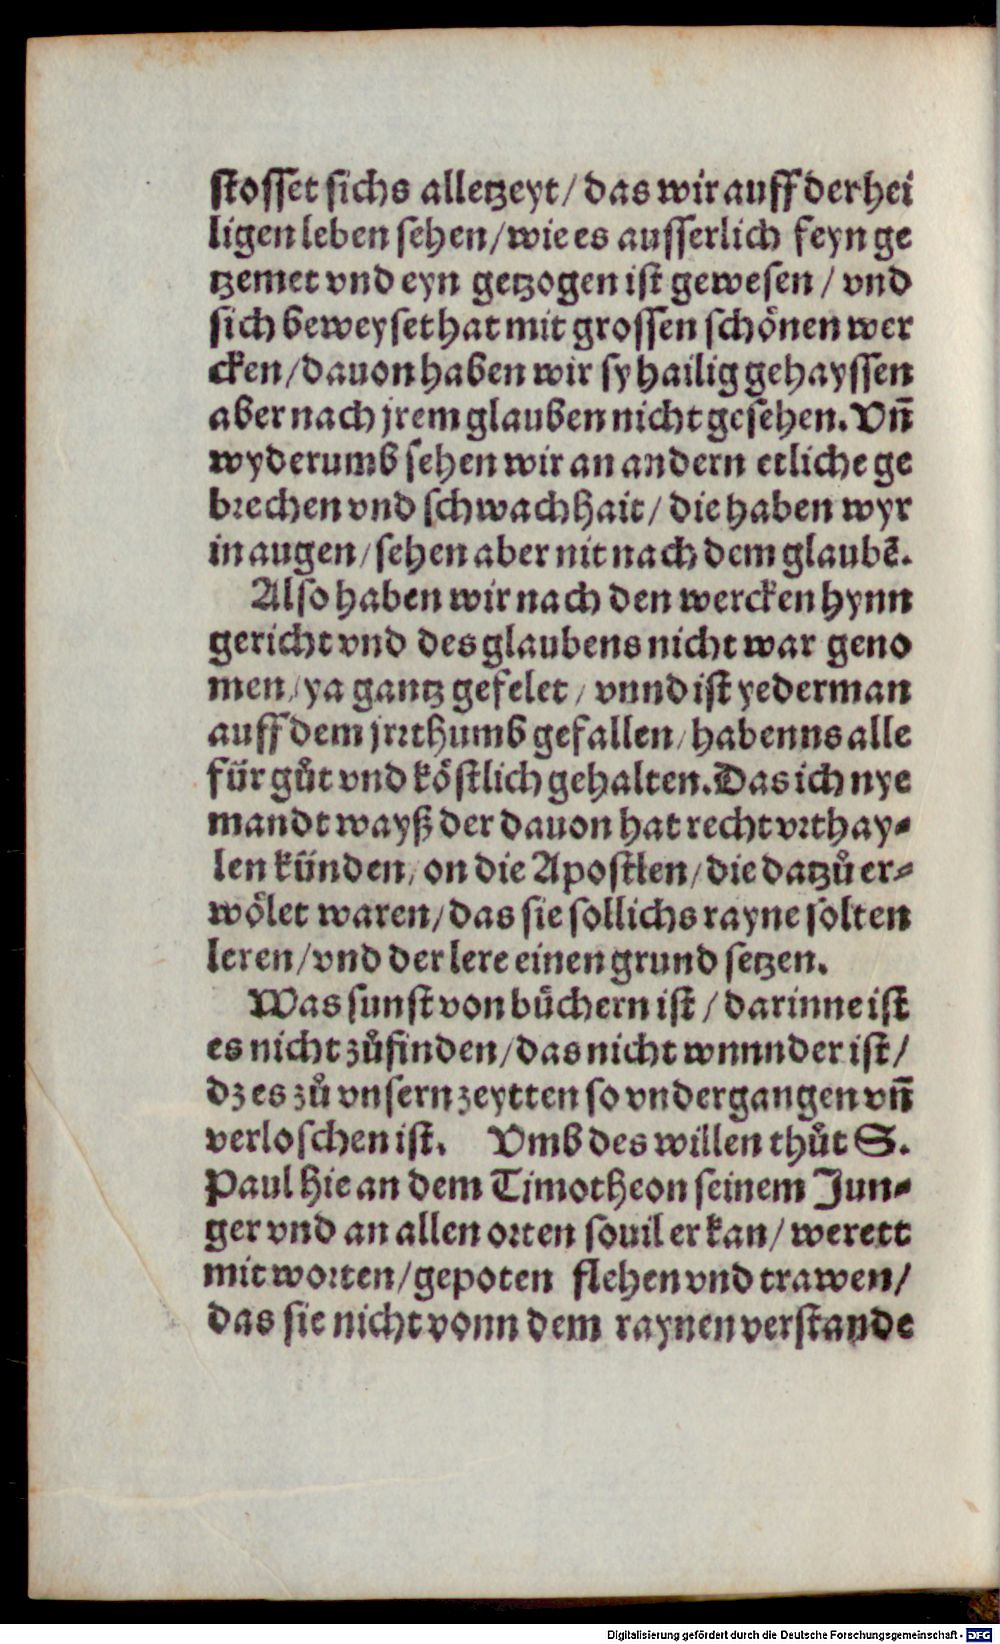 stosset sichs alletzeyt/ das wir auff der hei
ligen leben sehen/wie es ausserlich feyn ge
tzemet vnd eyn getzogen ist gewesen / vnd
sich beweyset hat mit grossen schönen wer
cken/dauon haben wir sy hailig gehayssen
aber nach jrem glauben nicht gesehen. Vñ
wyderumb sehen wir an andern etliche ge
brechen vnd schwachhait/ die haben wyr
in augen/sehen aber nit nach dem glaubē.
Also haben wir nach den wercken hynn
gericht vnd des glaubens nicht war geno
men/ya gantz gefelet/ vnnd ist yederman
auff dem jrrthumb gefallen/habenns alle
für gůt vnd köstlich gehalten. Das ich nye
mandt wayß der dauon hat recht vrthay-
len künden/on die Apostlen/die datzů er-
wölet waren/das sie sollichs rayne solten
leren/vnd der lere einen grund setzen.
Was sunst von büchern ist / darinne ist
es nicht zůfinden/das nicht wnnnder ist/
dz es zů vnsern zeytten so vndergangen vñ
verloschen ist. Vmb des willen thůt S.
Paul hie an dem Timotheon seinem Jun-
ger vnd an allen orten souil er kan/ werett
mit worten/gepoten flehen vnd trawen/
das sie nicht vonn dem raynen verstande
Digitalisierung gefördert durch die Deutsche Forschungsgemeinschaft - DFG